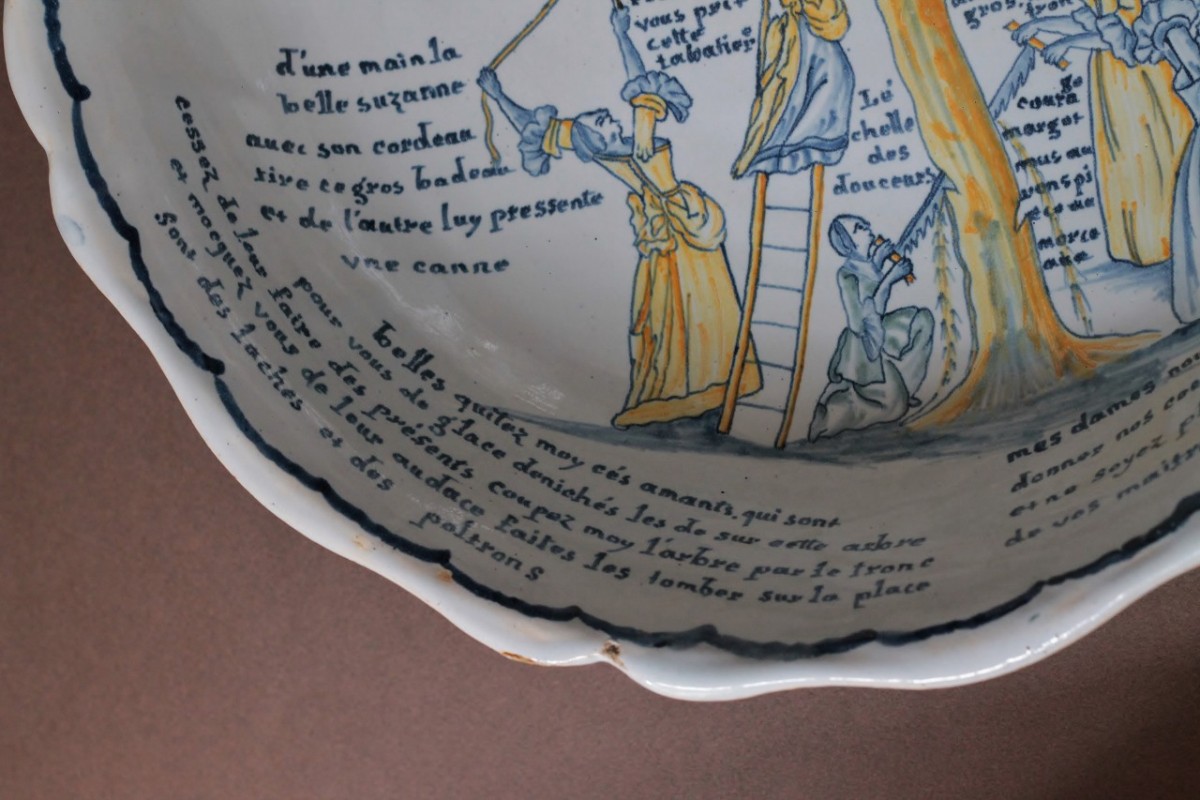 d'une main la
belle suzanne
avec son cordeau
tire ce gros badeau
et de l'autre luy pressente
vne canne
vous prit
cette
tabatier
Lé
chelle
des
douceurs
gros
tron
ge
coura
margot
nous au
rons pi
éce ou
morce
aux
belles quitez moy cés amants qui sont
pour vous de glace denichés les de sur cette arbre
cessez de leur faire des presents coupez moy l'arbre par le tronc
et mocquez vous de leur audace faites les tomber sur la place
sont des laches et des poltrons
mes dames
donner nos
et ne soyez
de vos